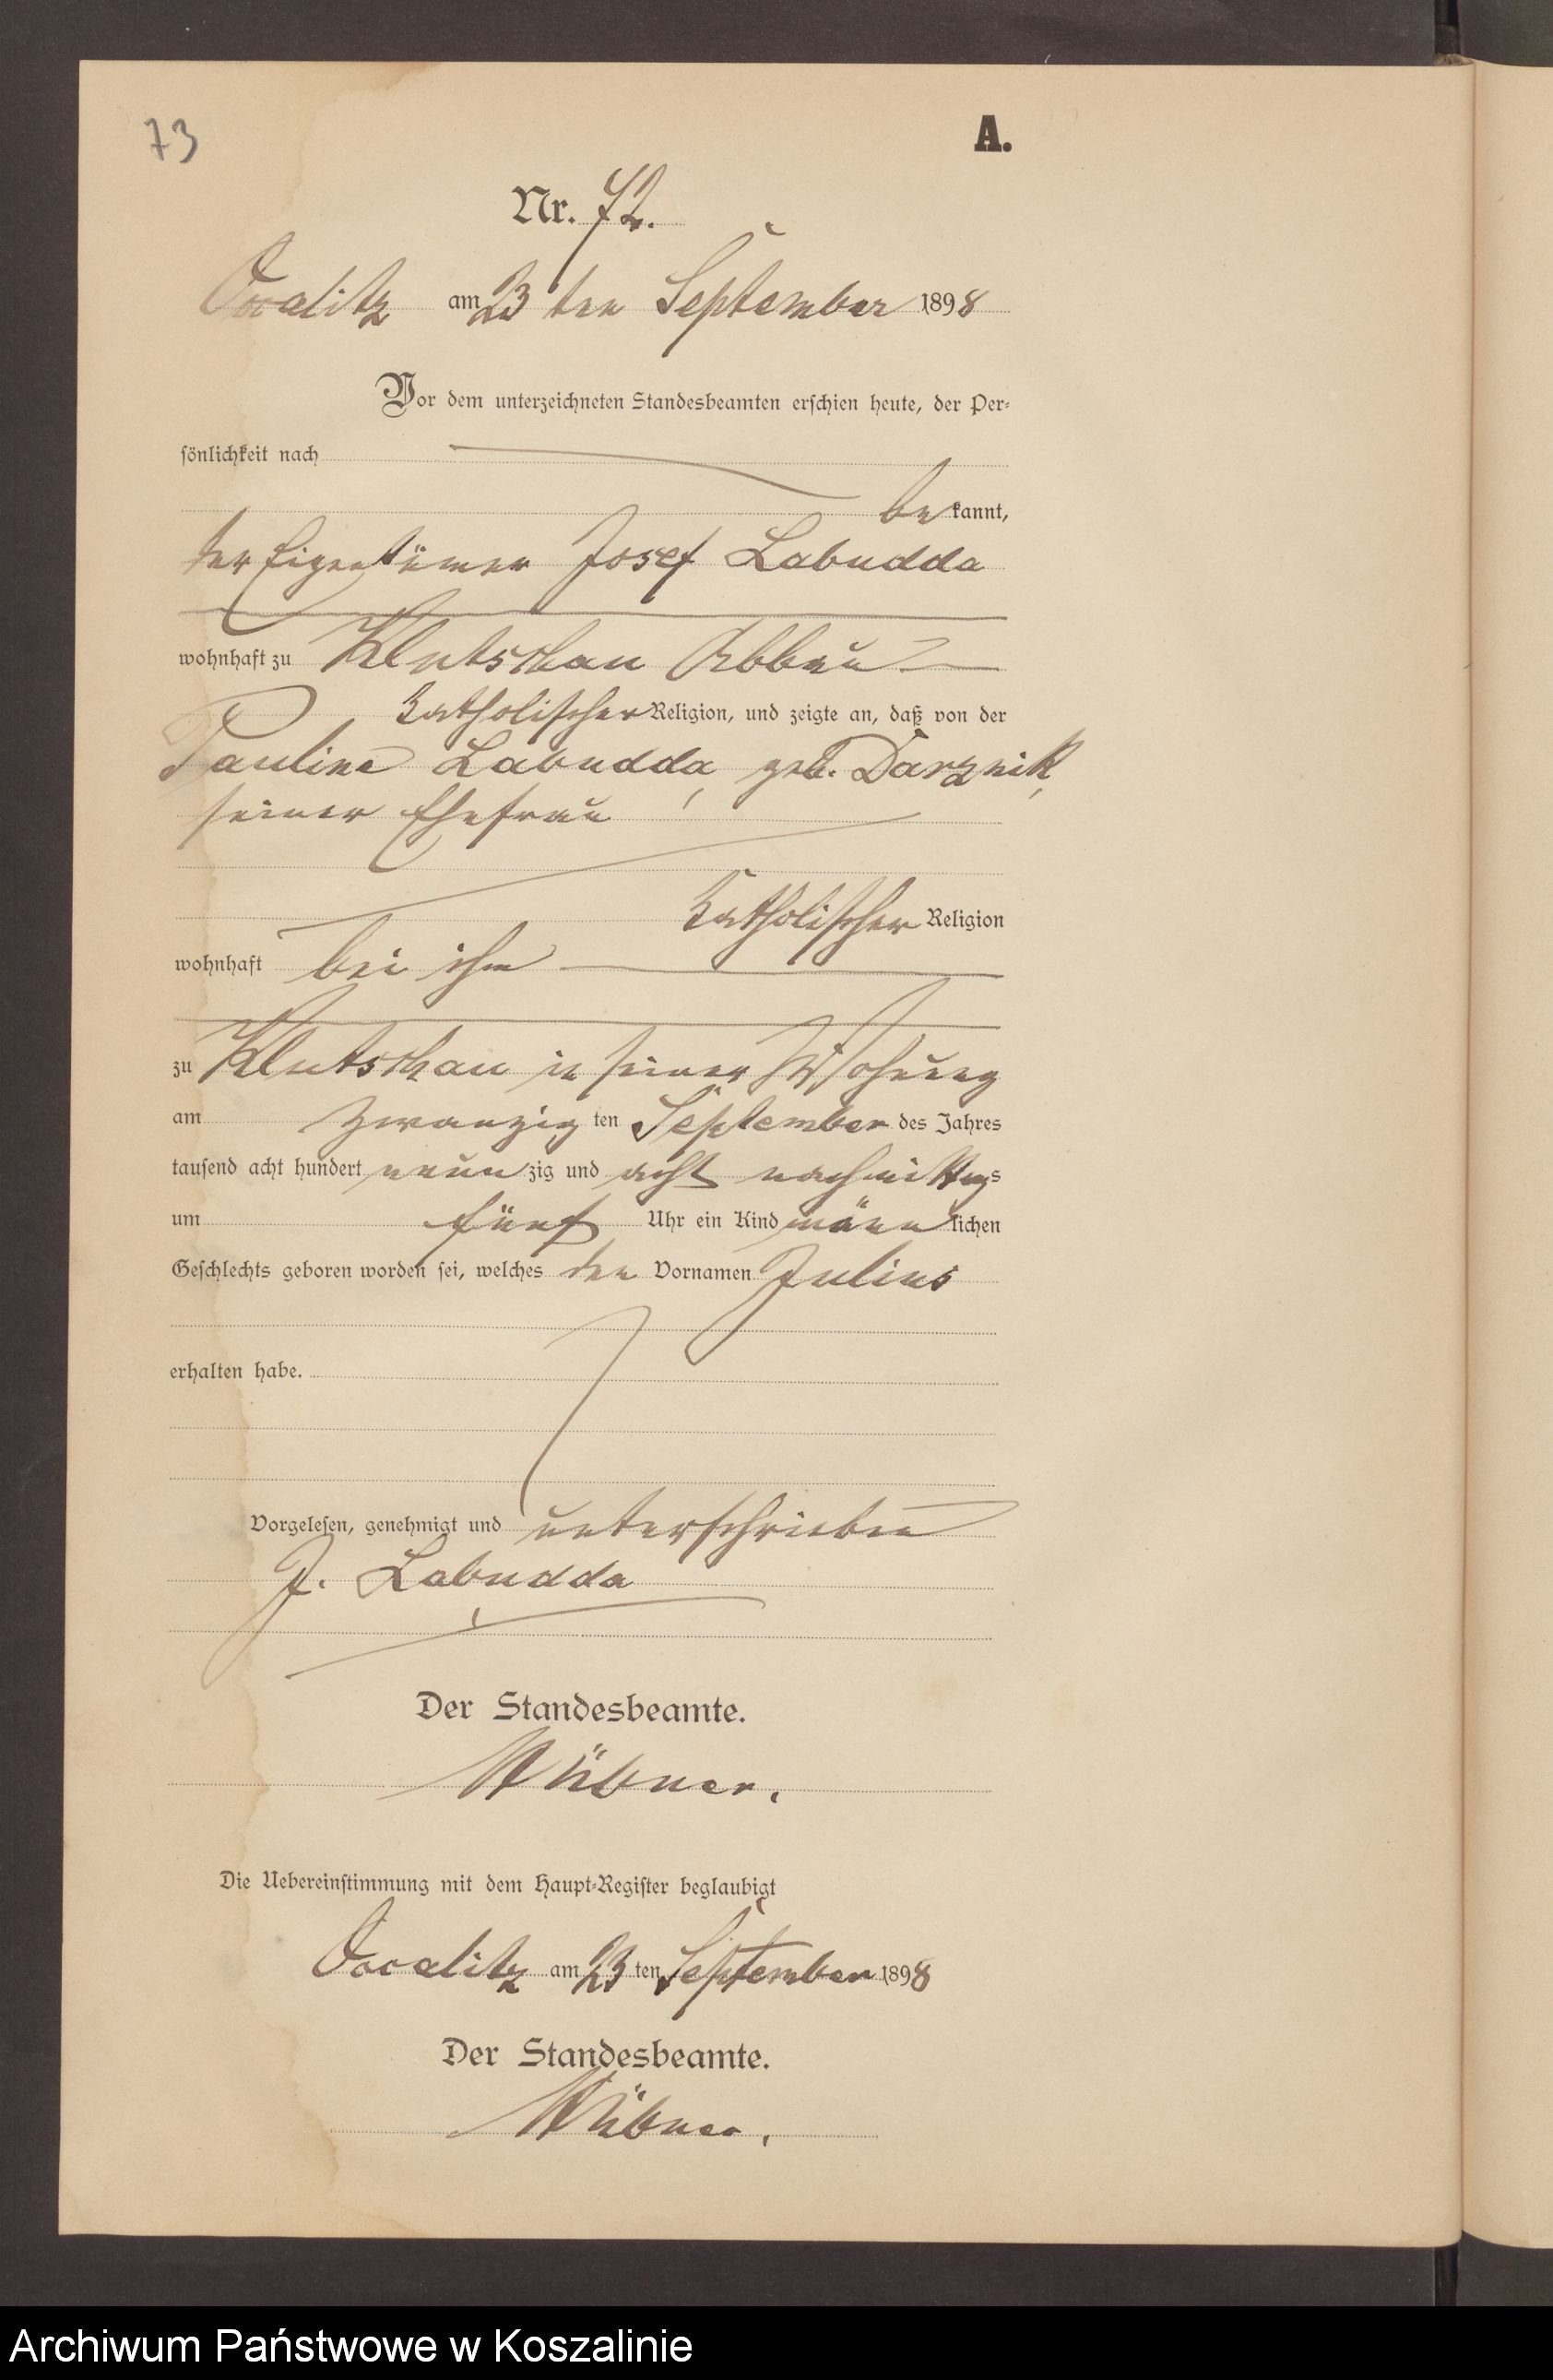 73
A.
Nr. 72.
Occalitz am 23 ten September 1898
Vor dem unterzeichneten Standesbeamten erschien heute, der Per-
sönlichkeit nach
bekannt,
der Eigentümer Josef Labudda
wohnhaft zu Klutschau Abbau
katholischer Religion, und zeigte an, daß von der
Pauline Labudda, geb. Darznik,
seiner Ehefrau
katholischer Religion
wohnhaft bei ihm
zu Klutschau in seiner Wohnung
am zwanzig ten September des Jahres
tausend acht hundert neunzig und acht nachmittags
um fünf Uhr ein Kind männlichen
Geschlechts geboren worden sei, welches den Vornamen Julius
erhalten habe.
Vorgelesen, genehmigt und unterschrieben
J. Labudda
Der Standesbeamte.
Hübner.
Die Uebereinstimmung mit dem Haupt-Register beglaubigt
Occalitz am 23 ten September 1898
Der Standesbeamte.
Hübner.
Archiwum Państwowe w Koszalinie